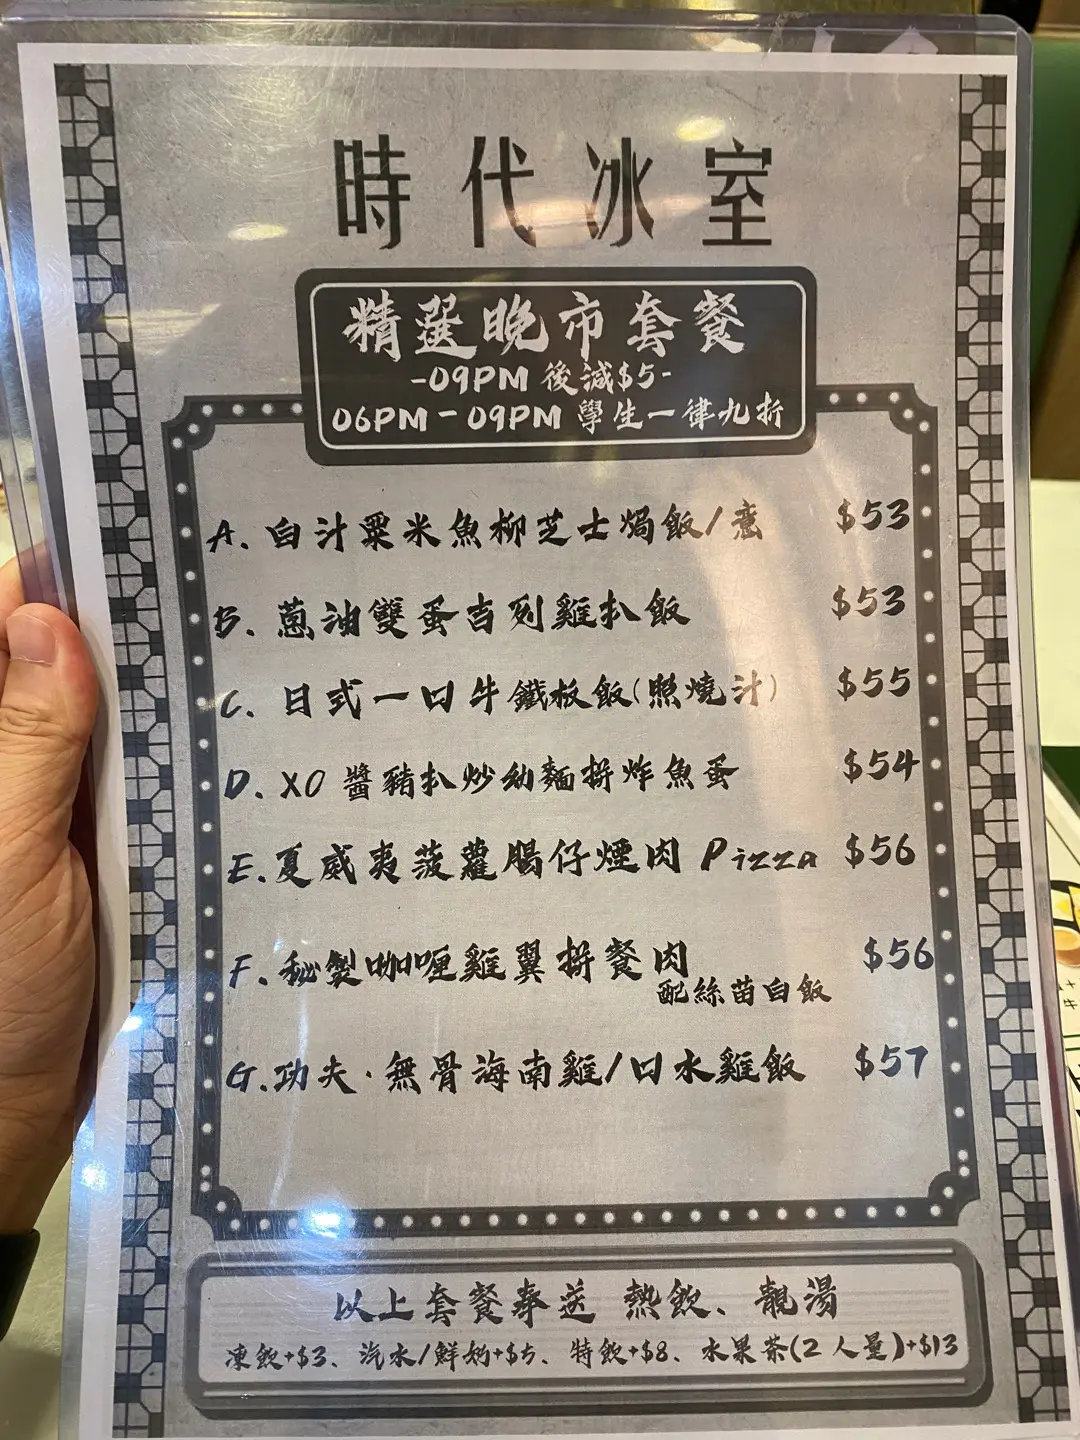 時代冰室
精選晚市套餐
-09PM 後減$5-
06PM-09PM 學生一律九折
A. 白汁粟米魚柳芝士焗飯/意 $53
B. 蔥油雙蛋吉列雞扒飯 $53
C. 日式一口牛鐵板飯(照燒汁) $55
D. XO 醬豬扒炒幼麵拼炸魚蛋 $54
E. 夏威夷菠蘿腸仔煙肉 Pizza $56
F. 秘製咖喱雞翼拼餐肉 $56
配絲苗白飯
G. 功夫·無骨海南雞/口水雞飯 $57
以上套餐奉送 熱飲、靚湯
凍飲+$3、汽水/鮮奶+$5、特飲+$8、水果茶(2人量)+$13